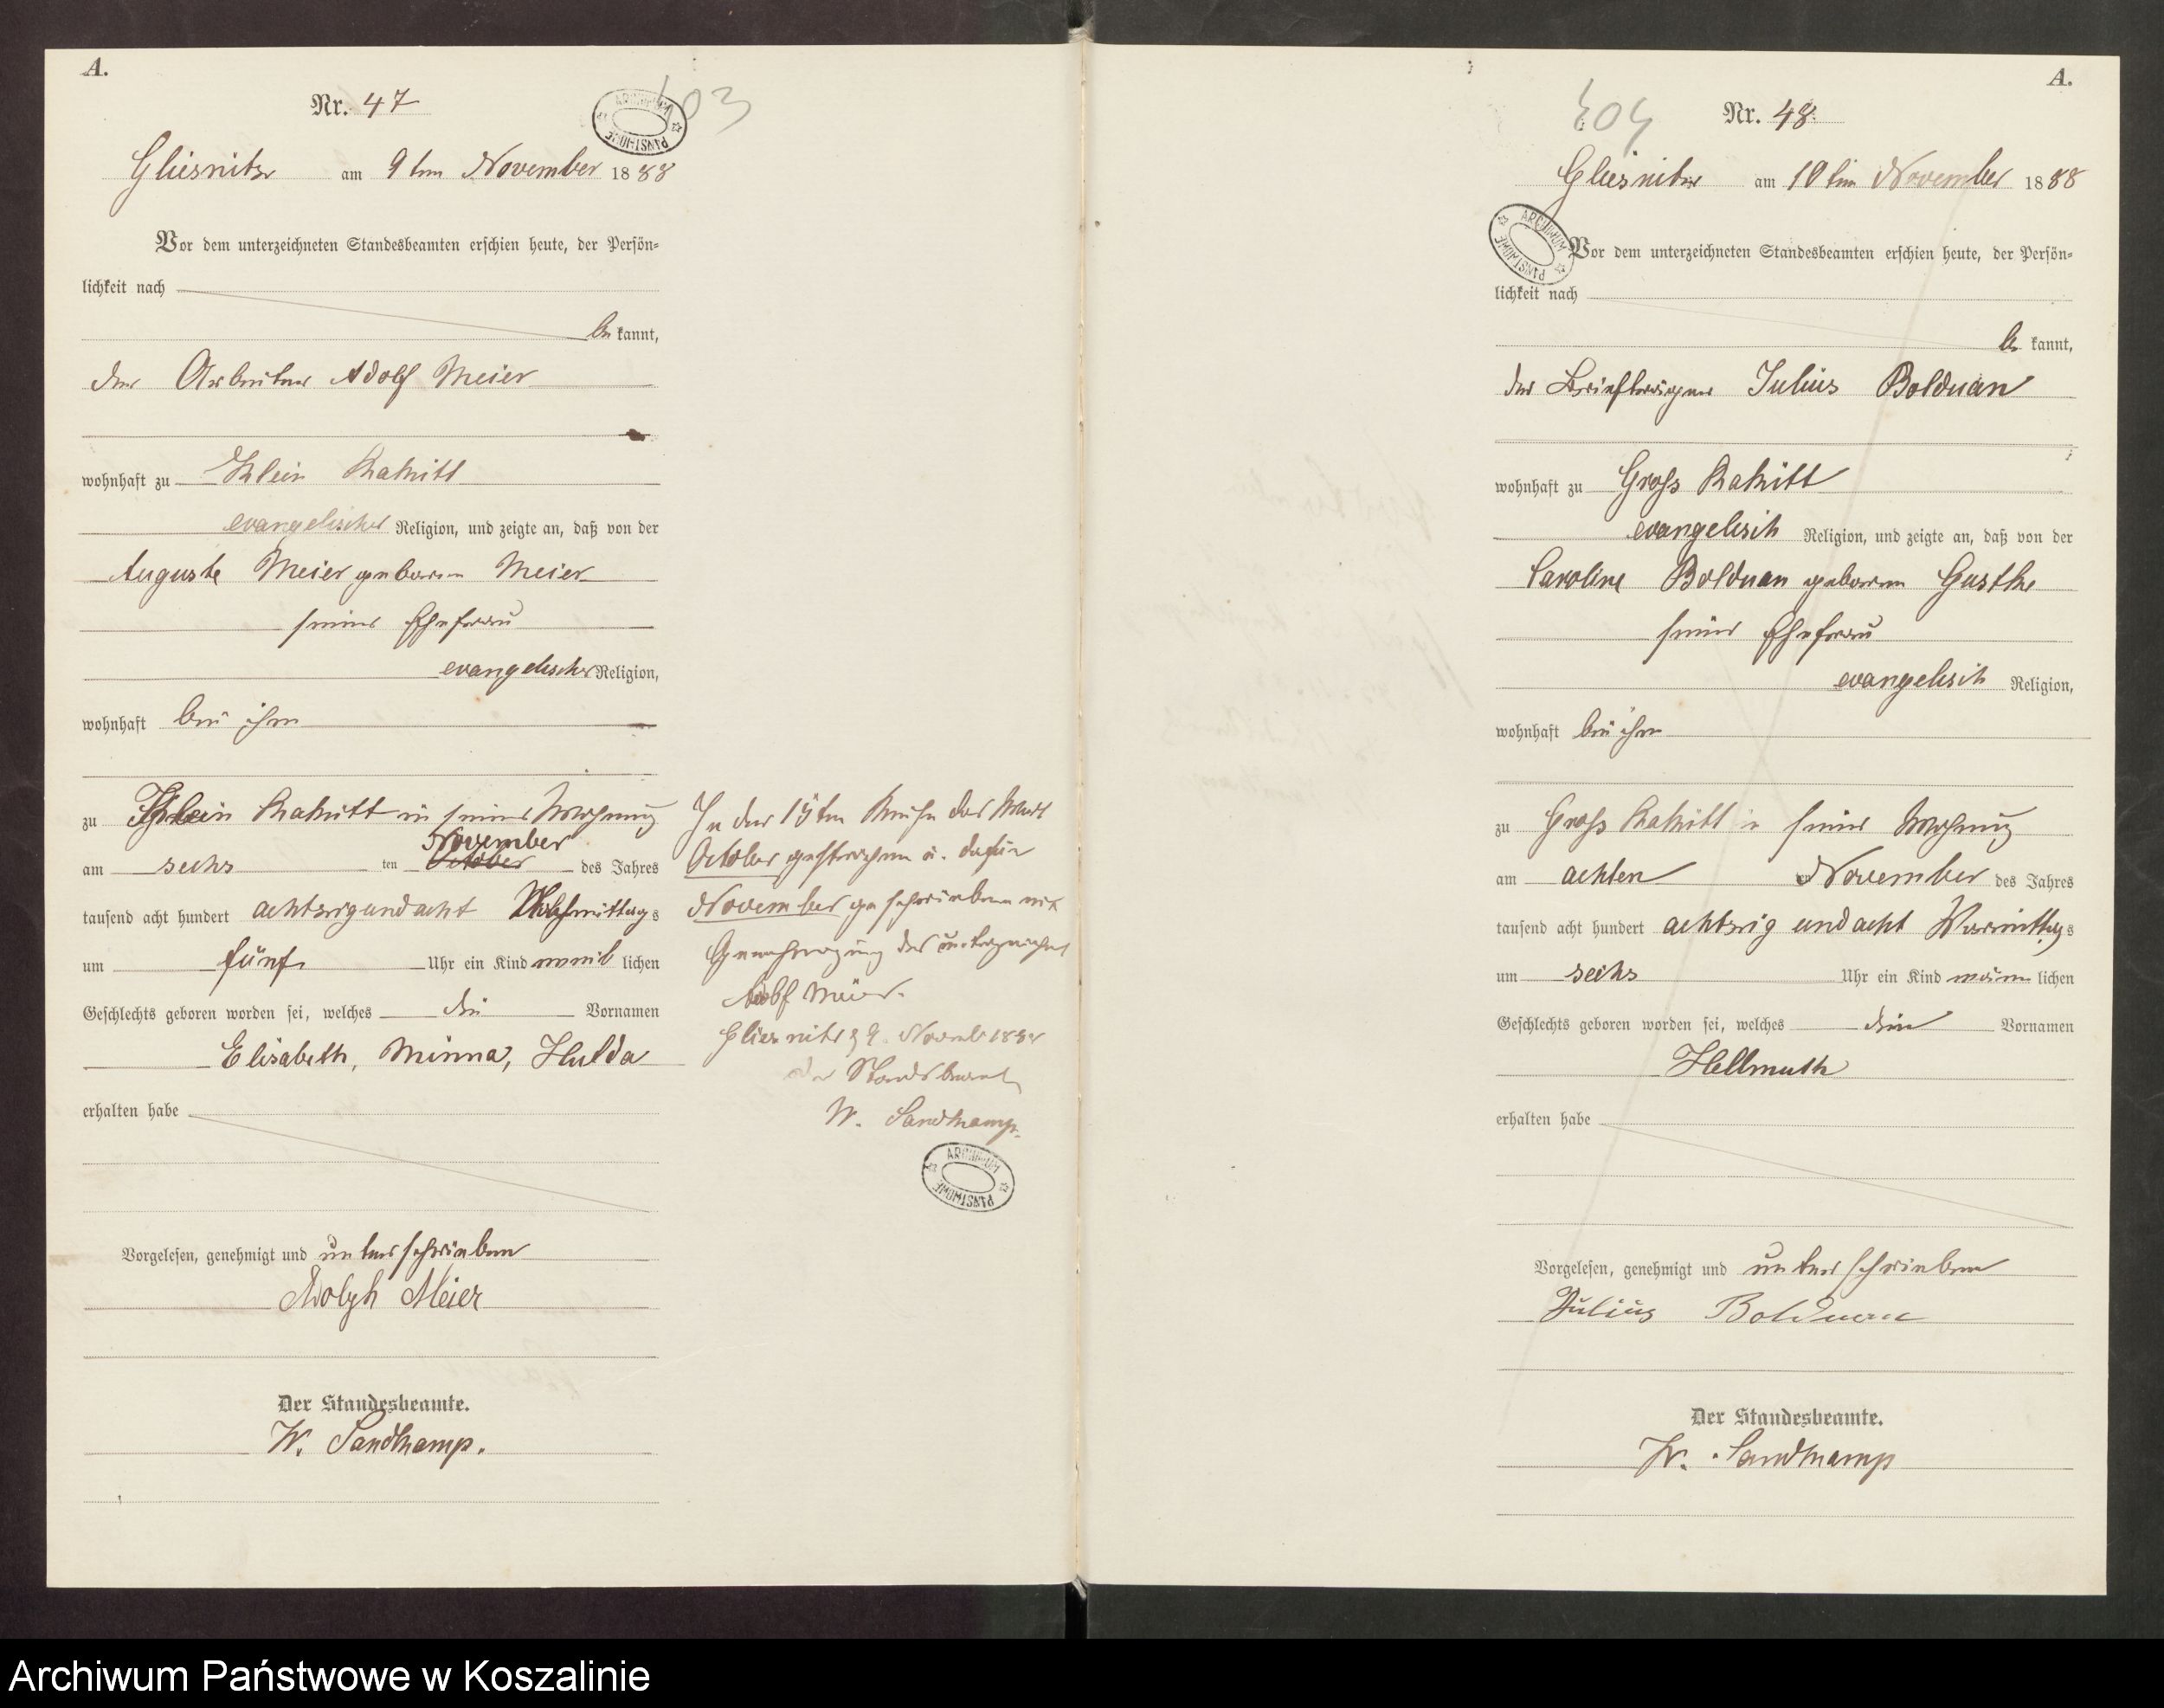 A.
Nr. 47
403
ARCHIWUM PAŃSTWOWE
Gliesnitz am 9ten November 1888
Vor dem unterzeichneten Standesbeamten erschien heute, der Persön-
lichkeit nach
be kannt,
der Arbeiter Adolf Meier
wohnhaft zu Klein Rakitt
evangelischer Religion, und zeigte an, daß von der
Auguste Meier geboren Meier
seiner Ehefrau
evangelischer Religion,
wohnhaft bei ihm
zu Klein Rakitt in seiner Wohnung
November
am sechs ten October des Jahres
tausend acht hundert achtzigundacht Nachmittags
um fünf Uhr ein Kind weib lichen
Geschlechts geboren worden sei, welches die Vornamen
Elisabeth, Minna, Hulda
erhalten habe
Vorgelesen, genehmigt und unterschrieben
Adolph Meier
Der Standesbeamte.
W. Sandkamp.
In der 15ten Reihe das Wort
October gestrichen u. dafür
November geschrieben mit
Genehmigung des
Adolf Meier.
Gliesnitz d 9. Novemb 1888
der Standsbeamt
W. Sandkamp.
ARCHIWUM PAŃSTWOWE
A.
404
Nr. 48
Gliesnitz am 10ten November 1888
ARCHIWUM PAŃSTWOWE
Vor dem unterzeichneten Standesbeamten erschien heute, der Persön-
lichkeit nach
be kannt,
der Briefträger Julius Bolduan
wohnhaft zu Gross Rakitt
evangelisch Religion, und zeigte an, daß von der
Caroline Bolduan geboren Gusthe
seiner Ehefrau
evangelisch Religion,
wohnhaft bei ihm
zu Gross Rakitt in seiner Wohnung
am achten November des Jahres
tausend acht hundert achtzig und acht Vormittags
um sechs Uhr ein Kind männ lichen
Geschlechts geboren worden sei, welches den Vornamen
Hellmuth
erhalten habe
Vorgelesen, genehmigt und unterschrieben
Julius Bolduan
Der Standesbeamte.
W. Sandkamp
Archiwum Państwowe w Koszalinie